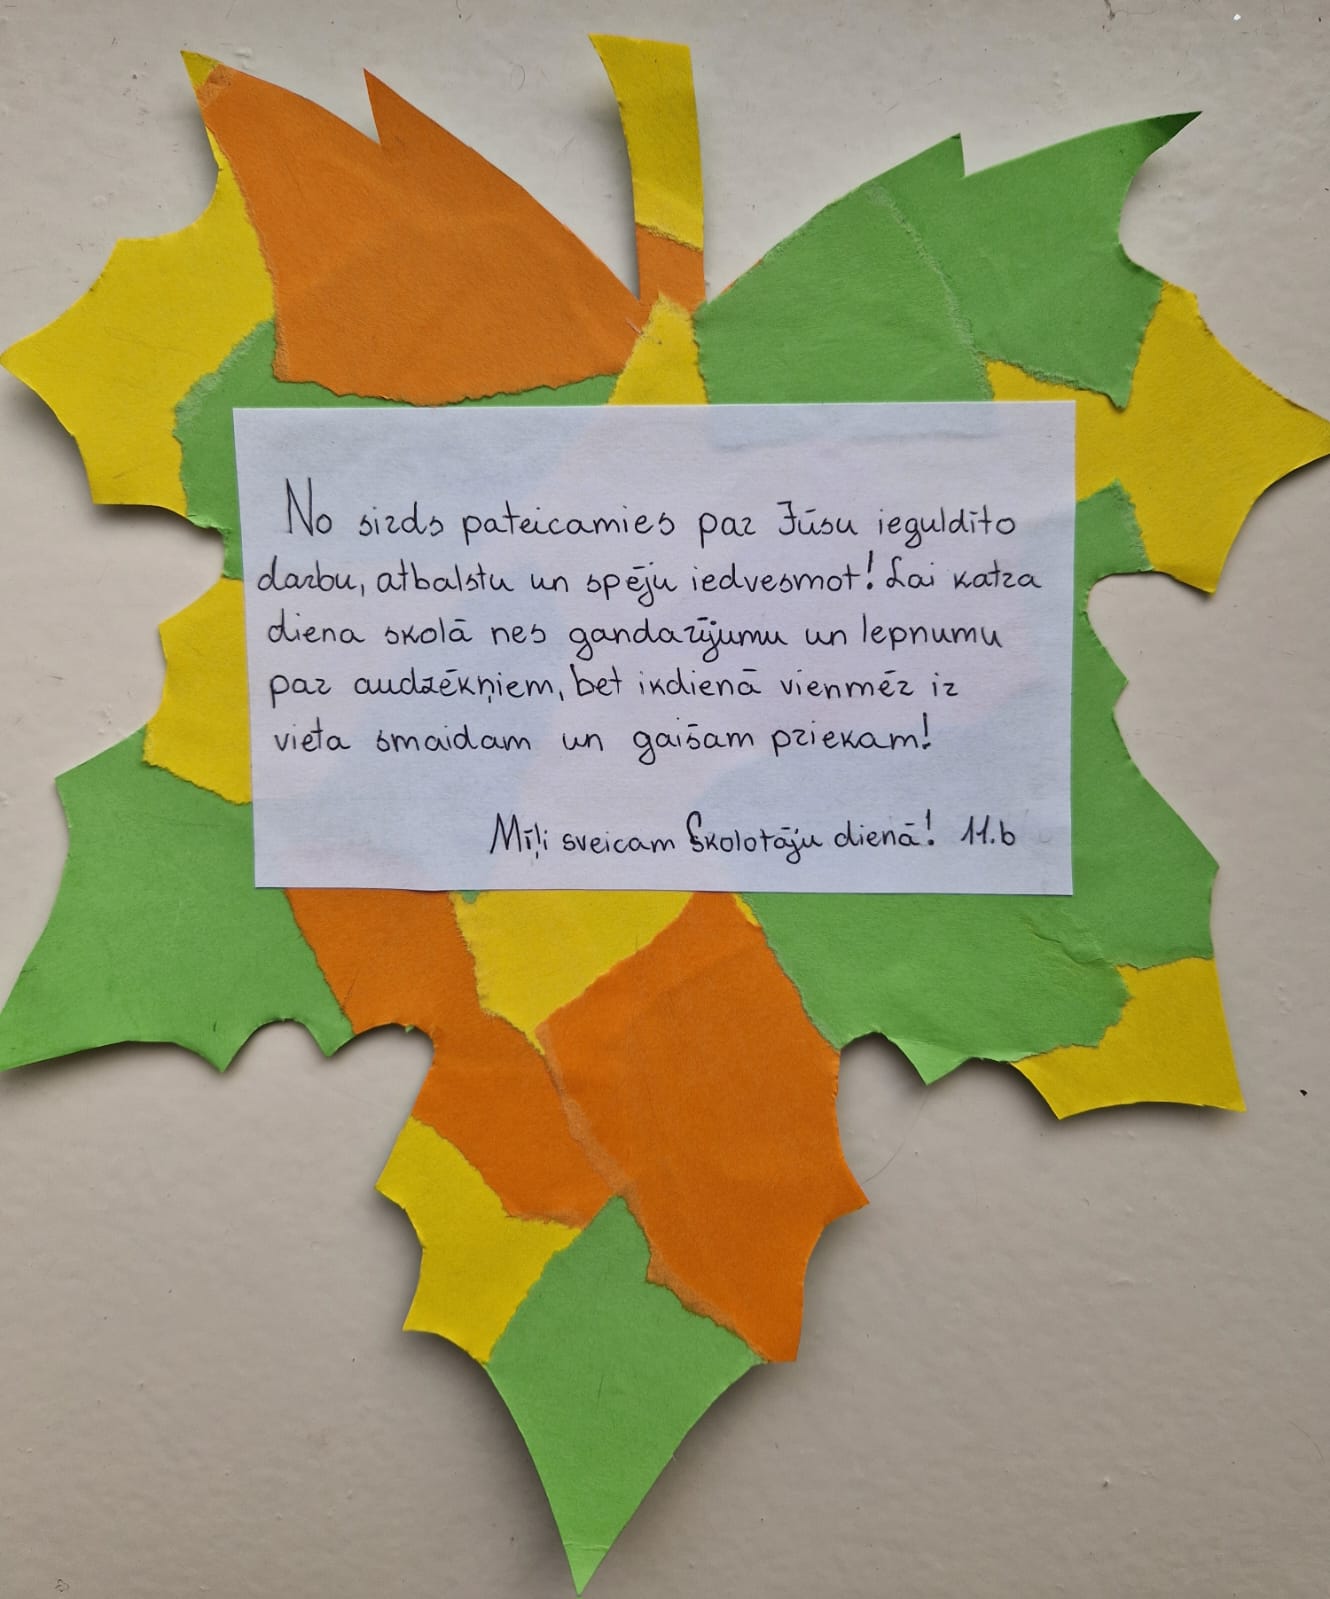 No sirds pateicamies par Jūsu ieguldīto
darbu, atbalstu un spēju iedvesmot! Lai katra
diena skolā nes gandarījumu un lepnumu
par audzēkņiem, bet ikdienā vienmēr ir
vieta smaidam un gaišam priekam!
Mīļi sveicam Skolotāju dienā! 11.b